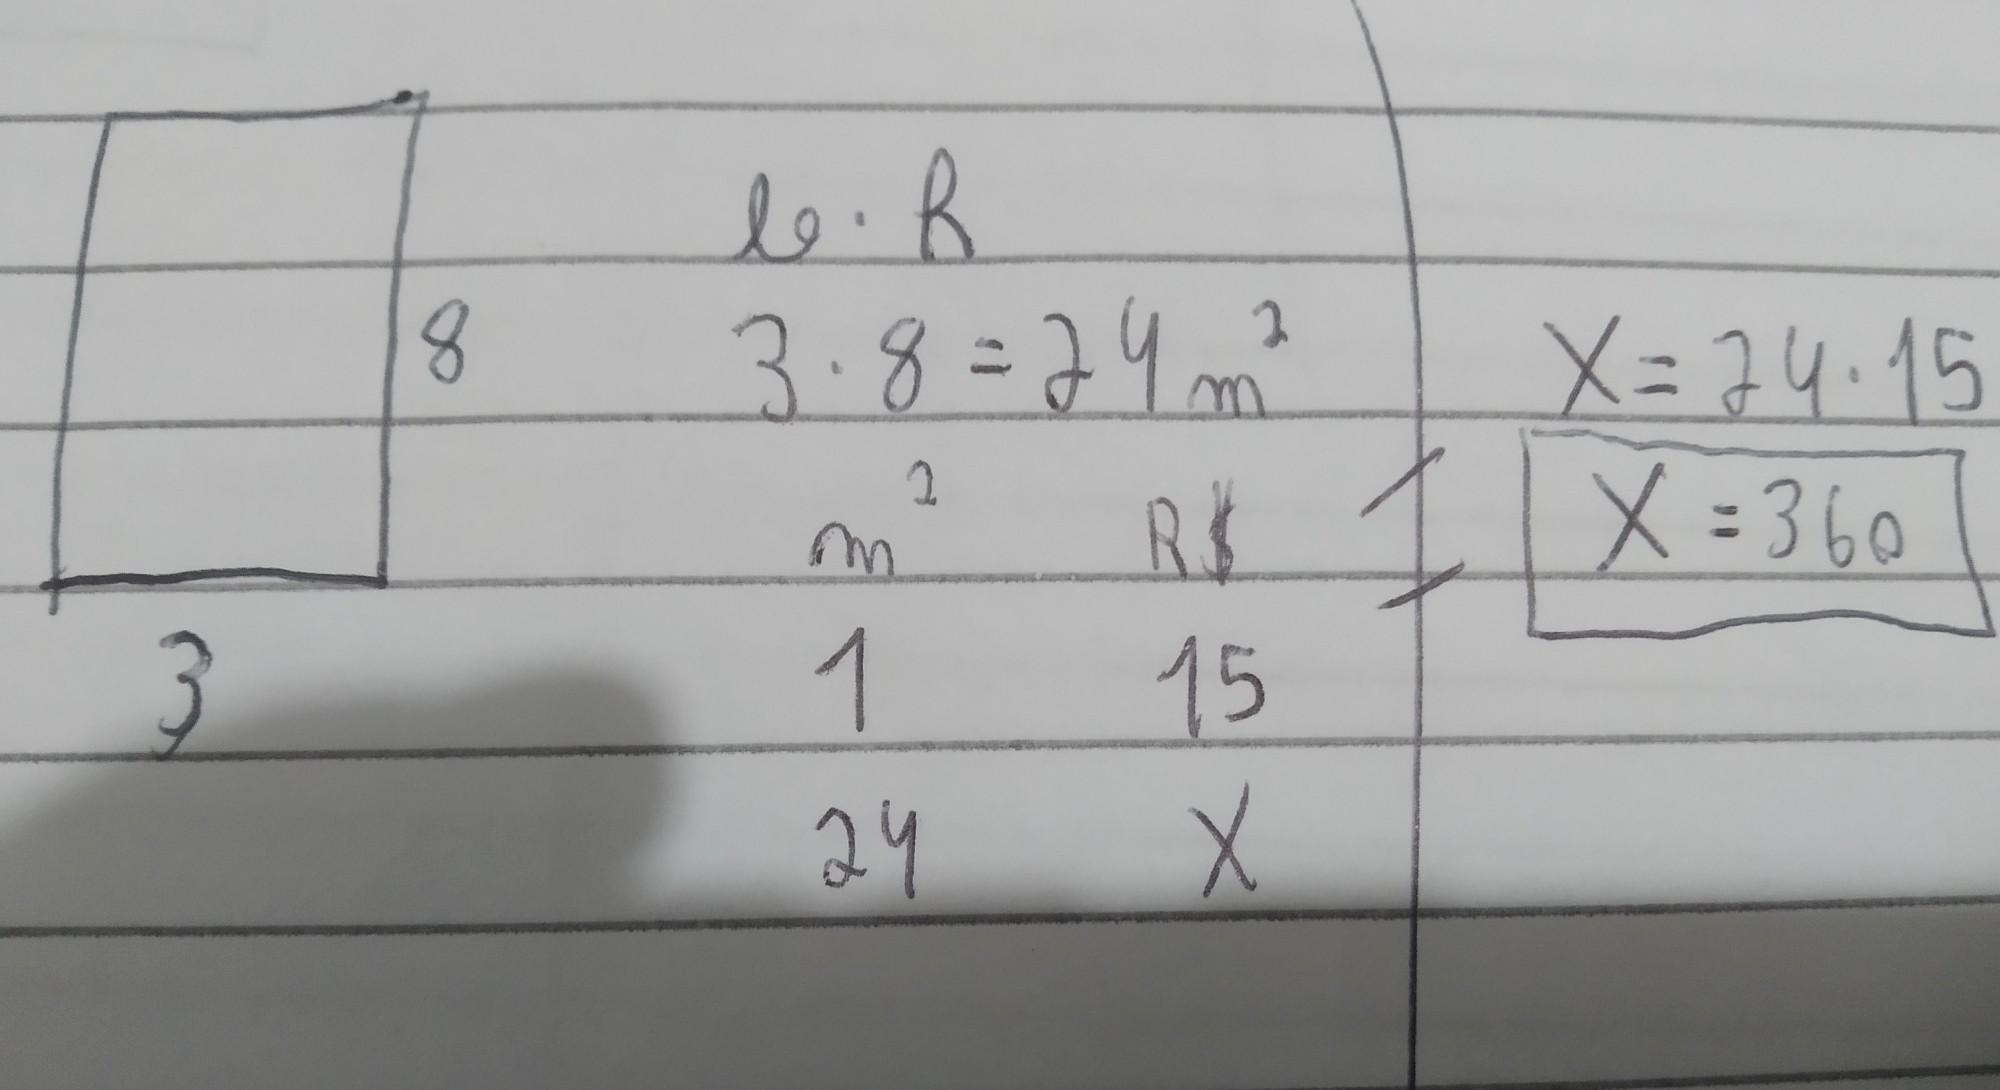 b · h
8
3 · 8 = 24 m²
m² R$
3
1 15
24 X
X = 24 · 15
X = 360